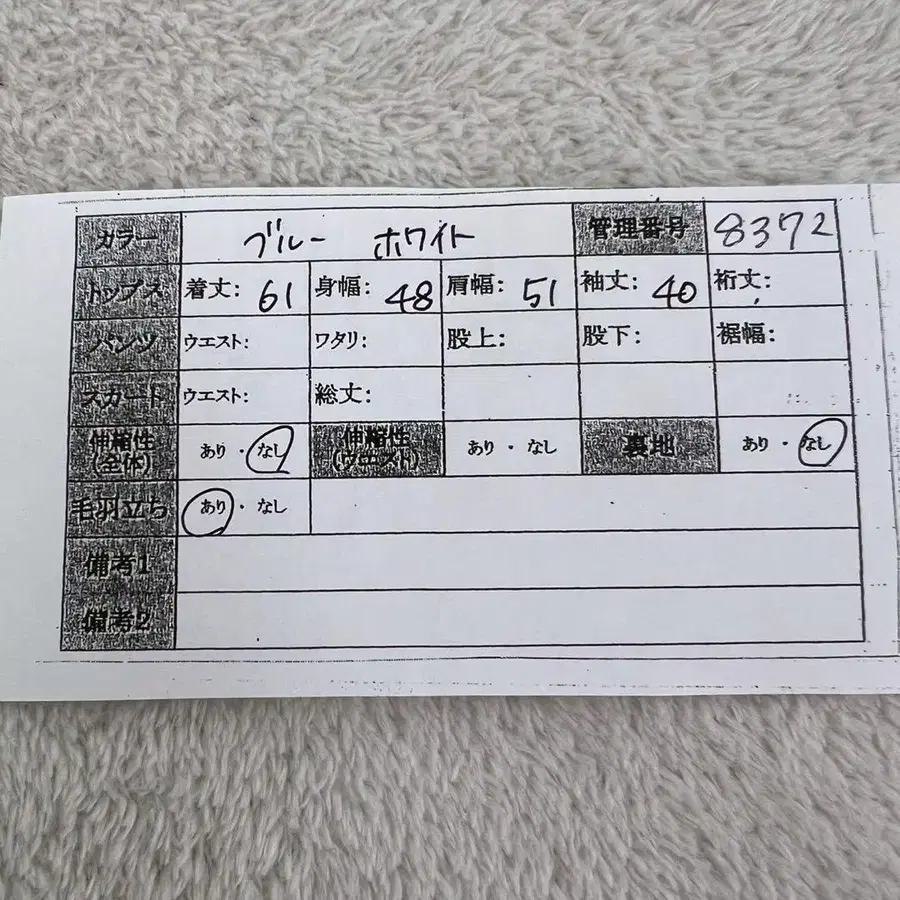 カラー ブルー ホワイト 管理番号 8372
トップス 着丈: 61 身幅: 48 肩幅: 51 袖丈: 40 裄丈:
パンツ ウエスト: ワタリ: 股上: 股下: 裾幅:
スカート ウエスト: 総丈:
伸縮性(全体) あり・なし 伸縮性(ウエスト) あり・なし 裏地 あり・なし
毛羽立ち あり・なし
備考1
備考2